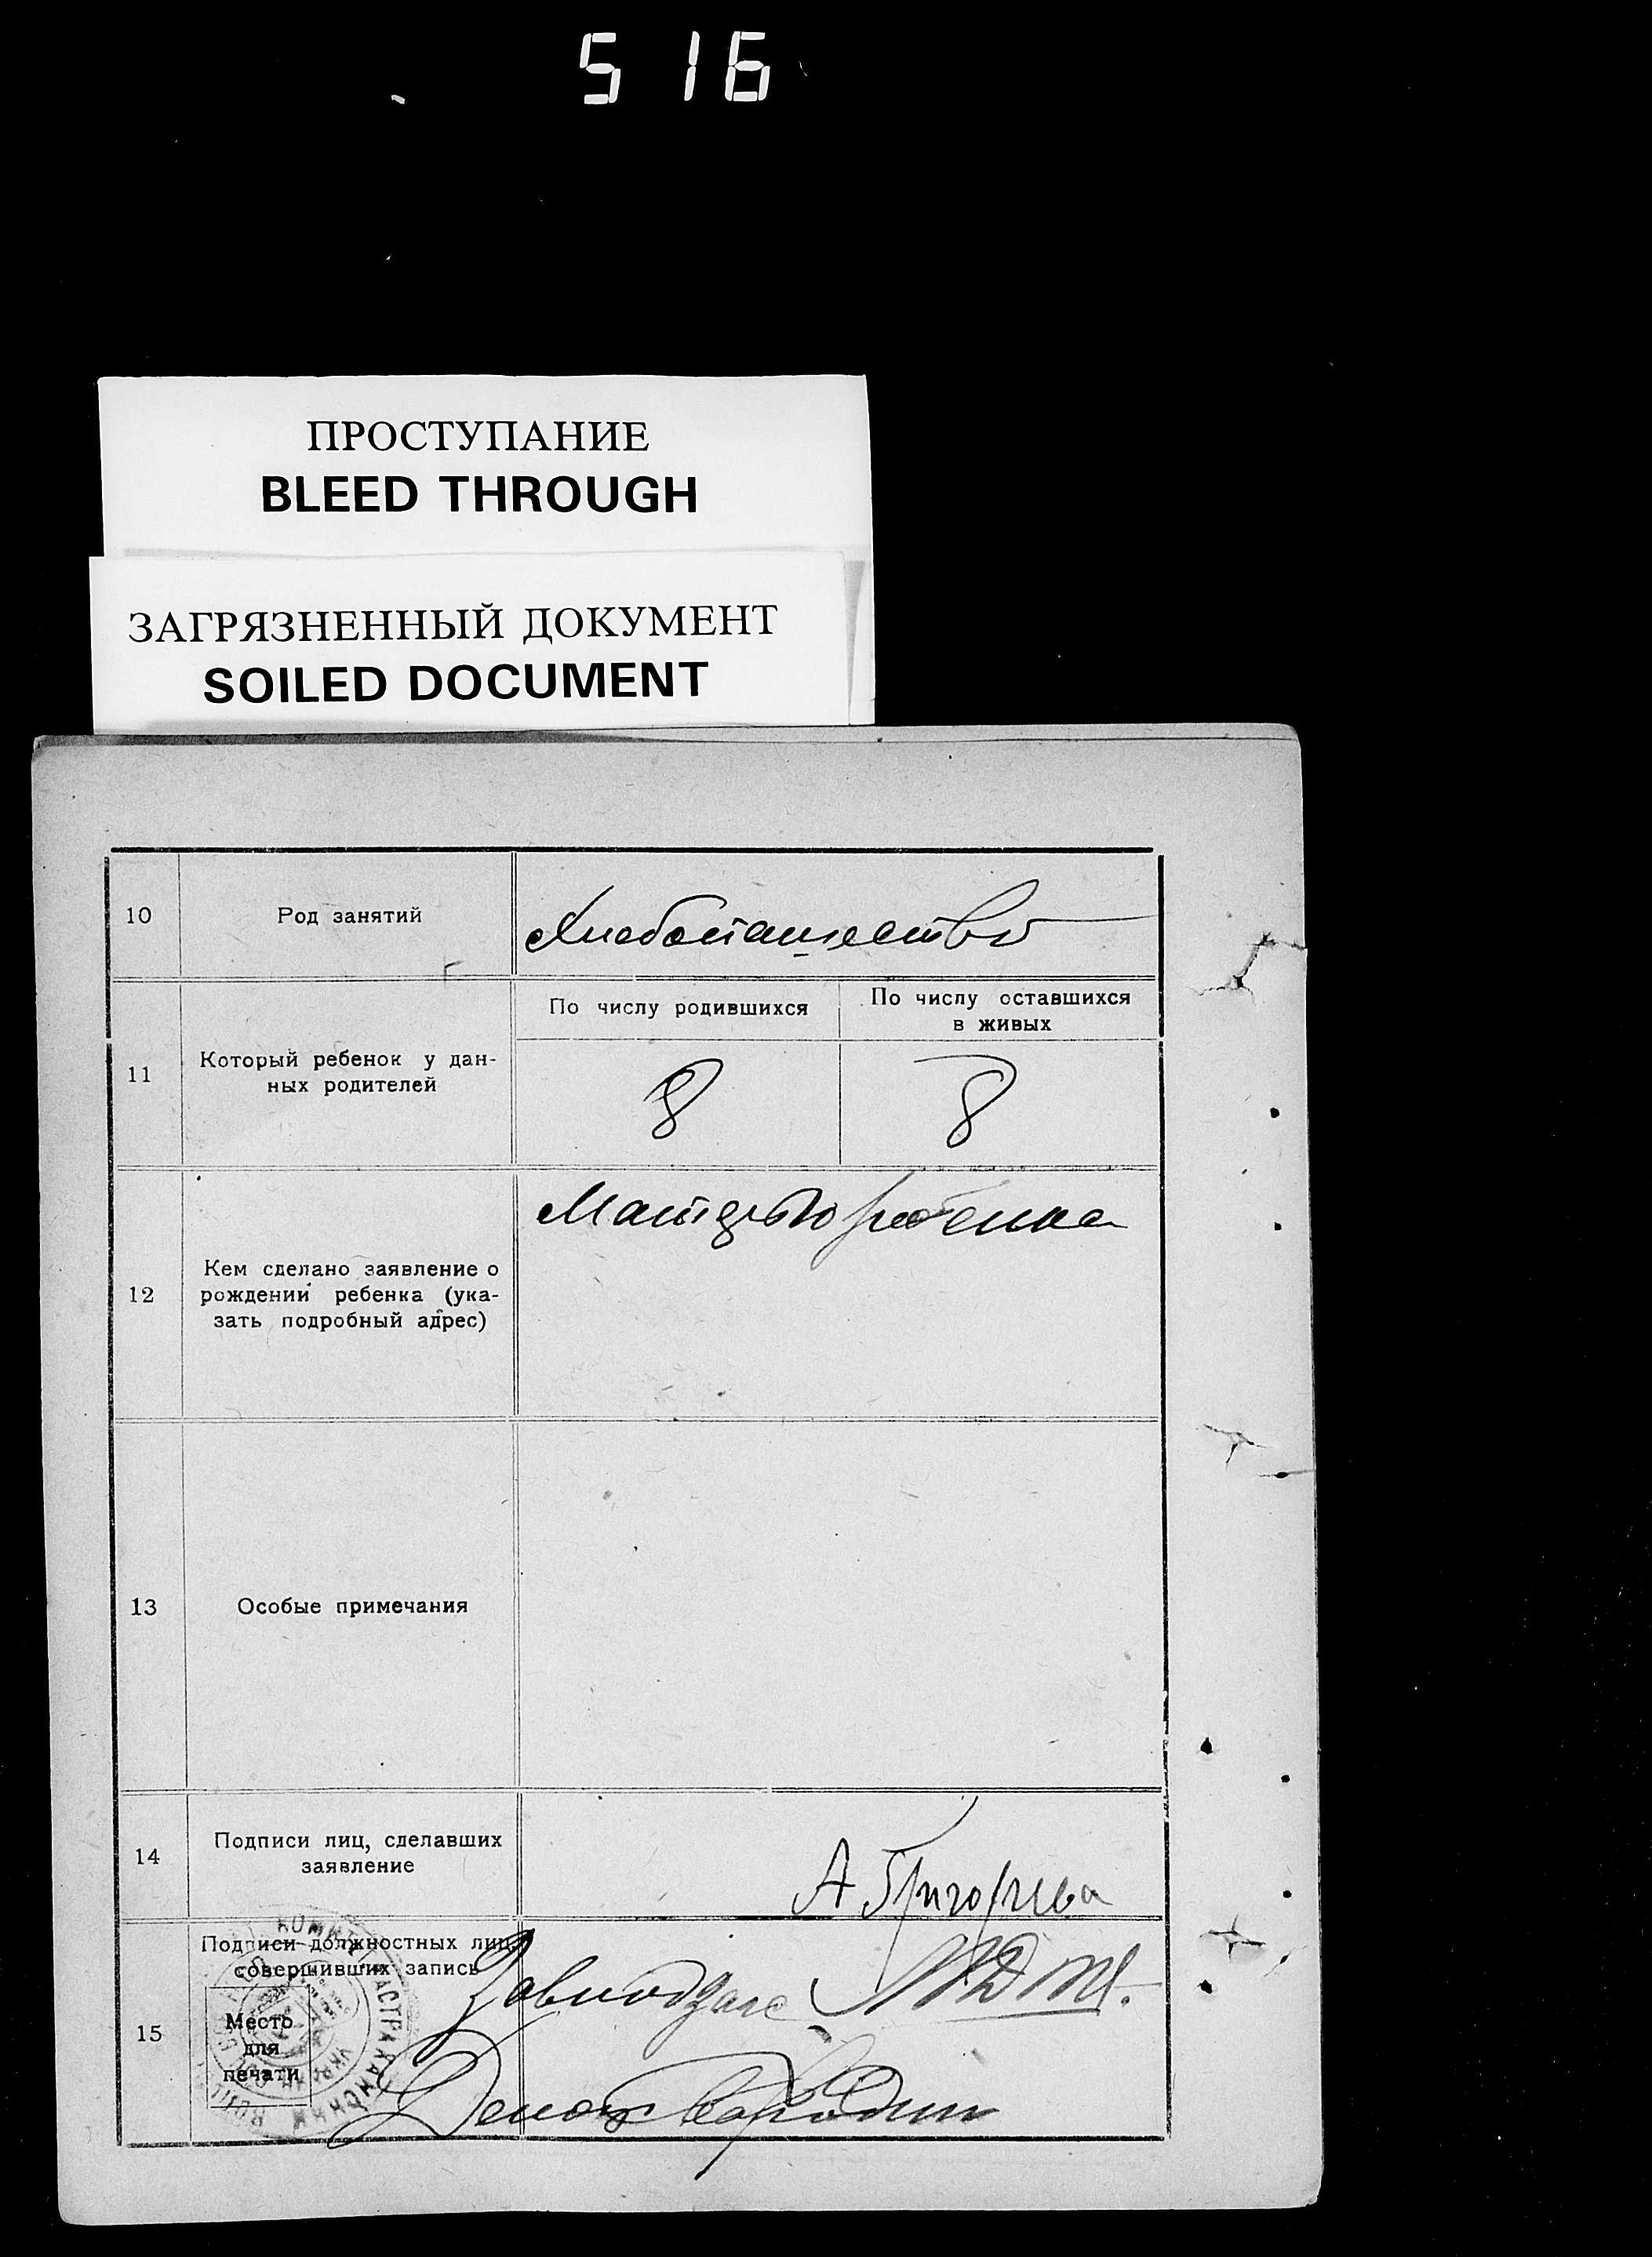 516
ПРОСТУПАНИЕ
BLEED THROUGH
ЗАГРЯЗНЕННЫЙ ДОКУМЕНТ
SOILED DOCUMENT
10 Род занятий Хлебопашество
По числу родившихся По числу оставшихся
в живых
11 Который ребенок у дан-
ных родителей
8 8
Матерью ребенка
12 Кем сделано заявление о
рождении ребенка (ука-
зать подробный адрес)
13 Особые примечания
14 Подписи лиц, сделавших
заявление
А Григорьева
15 Подписи должностных лиц,
совершивших запись
Место
для
печати
АСТРАХАНСКИЙ